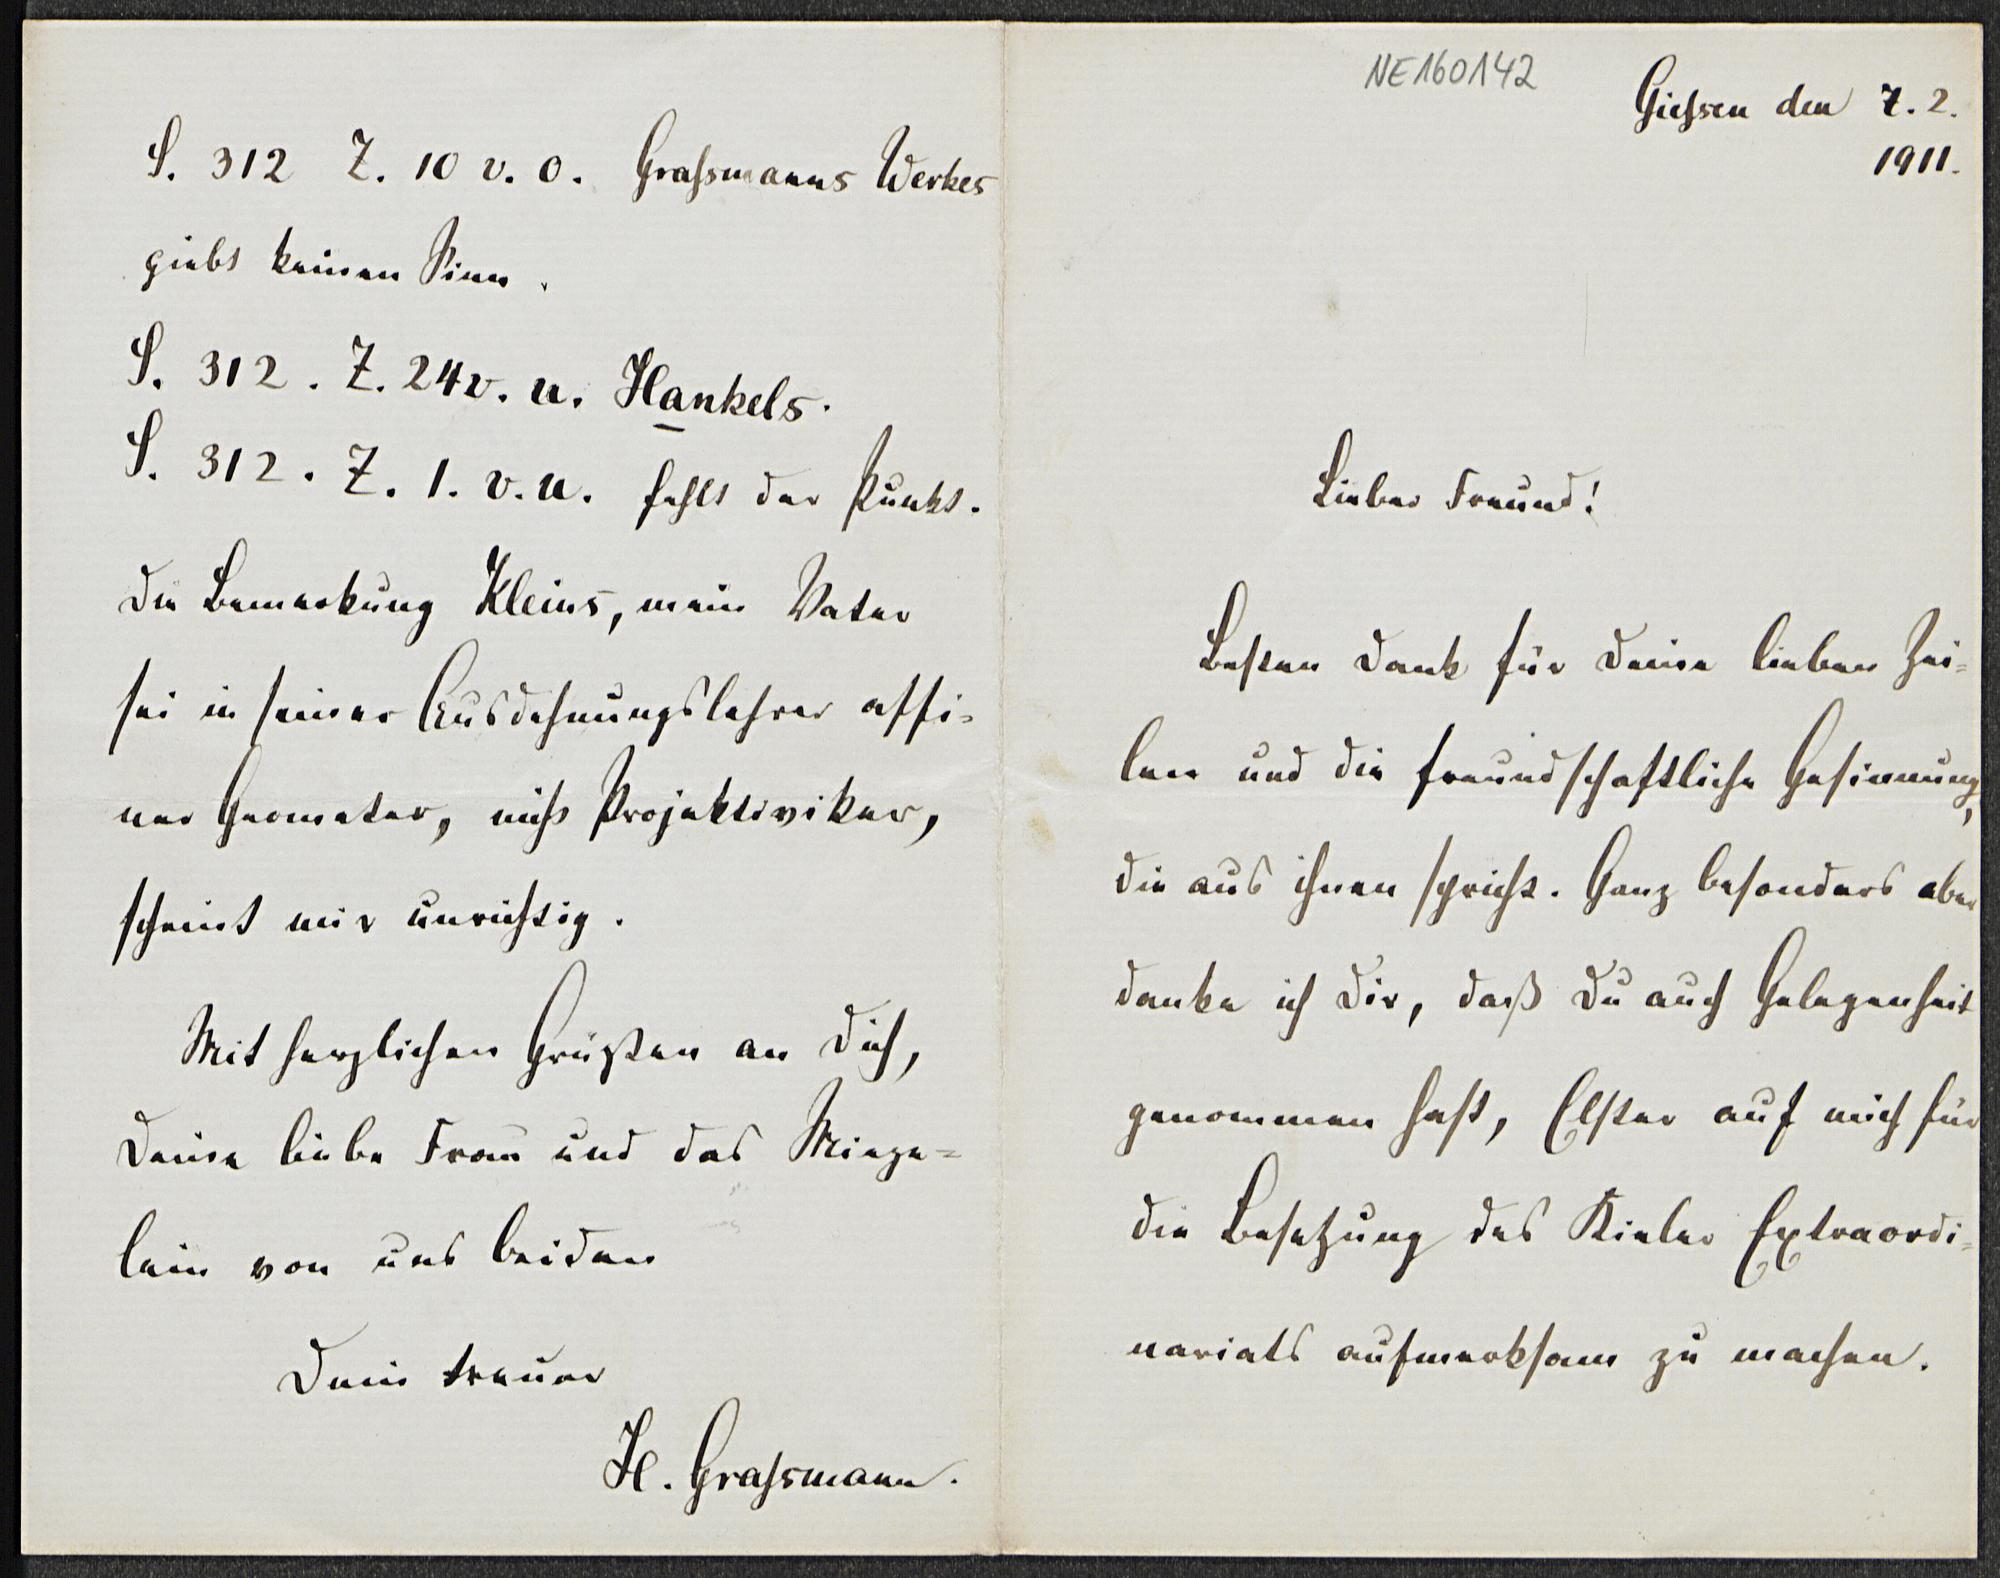 NE160142
Giessen den 7. 2.
1911.
Lieber Freund!
Besten Dank für Deine lieben Zei=
len und die freundschaftliche Gesinnung,
die aus ihnen spricht. Ganz besonders aber
danke ich Dir, daß Du auch Gelegenheit
genommen hast, Elster auf mich für
die Besetzung des Kieler Extraordi=
nariats aufmerksam zu machen.
S. 312 Z. 10 v. o. Grassmanns Werkes
giebt keinen Sinn.
S. 312. Z. 24 v. u. Hankels.
S. 312. Z. 1. v. u. fehlt der Punkt.
Die Bemerkung Kleins, mein Vater
sei in seiner Ausdehnungslehrer affi=
ner Geometer, nicht Projektiviker,
scheint mir unrichtig.
Mit herzlichen Grüßen an Dich,
Deine liebe Frau und das Mieze=
lein von uns beiden
Dein treuer
H. Grassmann.